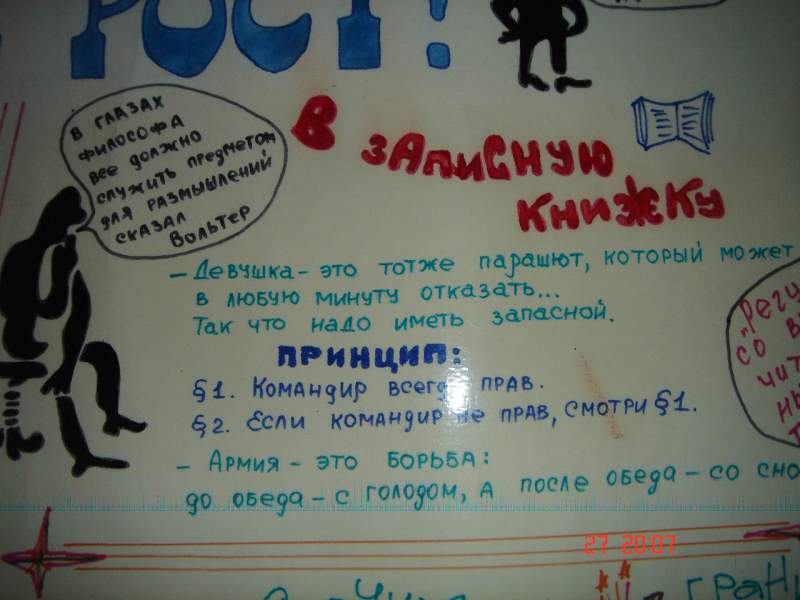 РОСТ!
В ГЛАЗАХ
ФИЛОСОФА
ВСЕ ДОЛЖНО
СЛУЖИТЬ ПРЕДМЕТОМ
ДЛЯ РАЗМЫШЛЕНИЙ
СКАЗАЛ
ВОЛЬТЕР
В ЗАПИСНУЮ
КНИЖКУ
– ДЕВУШКА – ЭТО ТОТЖЕ ПАРАШЮТ, КОТОРЫЙ МОЖЕТ
В ЛЮБУЮ МИНУТУ ОТКАЗАТЬ...
ТАК ЧТО НАДО ИМЕТЬ ЗАПАСНОЙ.
ПРИНЦИП:
§1. КОМАНДИР ВСЕГДА ПРАВ.
§2. ЕСЛИ КОМАНДИР НЕ ПРАВ, СМОТРИ §1.
– АРМИЯ – ЭТО БОРЬБА:
ДО ОБЕДА – С ГОЛОДОМ, А ПОСЛЕ ОБЕДА – СО СНО
„РЕГУ
СО В
ЧИТ
НЫ
27 2007
ГРАНИ